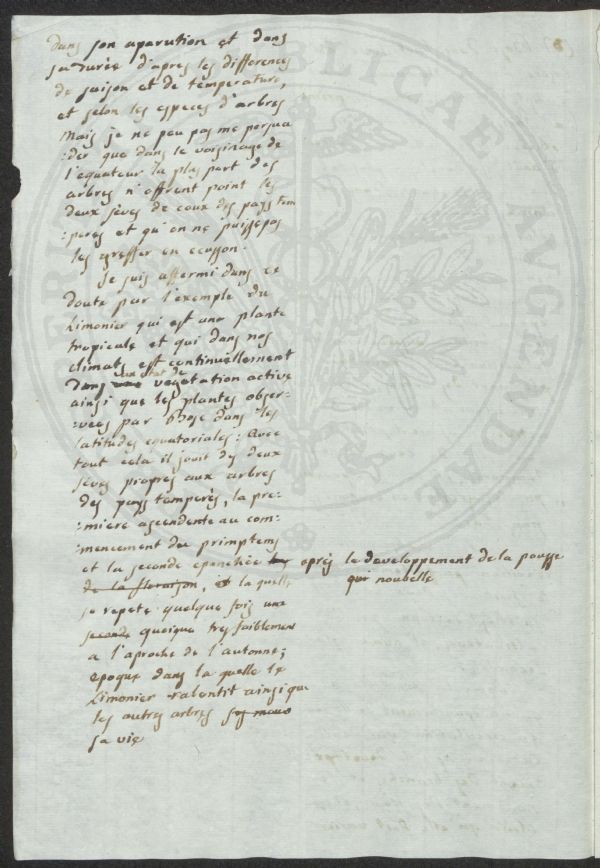 dans son aparution et dans
sa durée d'apres les differences
de saison et de température,
et selon les especes d'arbres
Mais je ne peu pas me persua
:der que dans le voisinage de
l'equateur la plus part des
arbres n'offrent point les
deux sèves de ceux des pays tem
:perés et qu'on ne puisse pas
les greffer en ecusson.
Je suis affermi dans ce
doute par l'exemple du
Limonier qui est une plante
tropicale et qui dans nos
climats est continuellement
un etat de
dans une vegetation active
ainsi que les plantes obser-
:vées par dans les
latitudes equatoriales: Avec
tout cela il jouit des deux
sèves propres aux arbres
des pays temperès, la pre:
:miere ascendente au com:
:mencement du primptems
et la seconde epanchée après le developpement de la pousse
de la floraison, et la quelle qui noubelle
se repete quelque fois une
seconde quoique tres faiblement
a l'aproche de l'automne;
epoque dans la quelle le
Limonier ralentit ainsi que
les autres arbres ses mous
sa vie